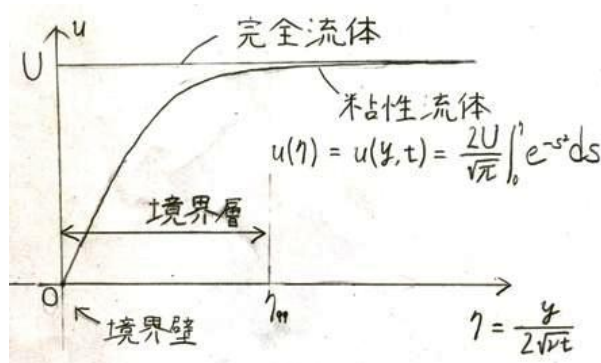 u
完全流体
U
粘性流体
u(η) = u(y,t) = \frac{2U}{\sqrt{π}} \int_0^η e^{-s²} ds
境界層
0
境界壁
η₉₉
η = \frac{y}{2\sqrt{νt}}